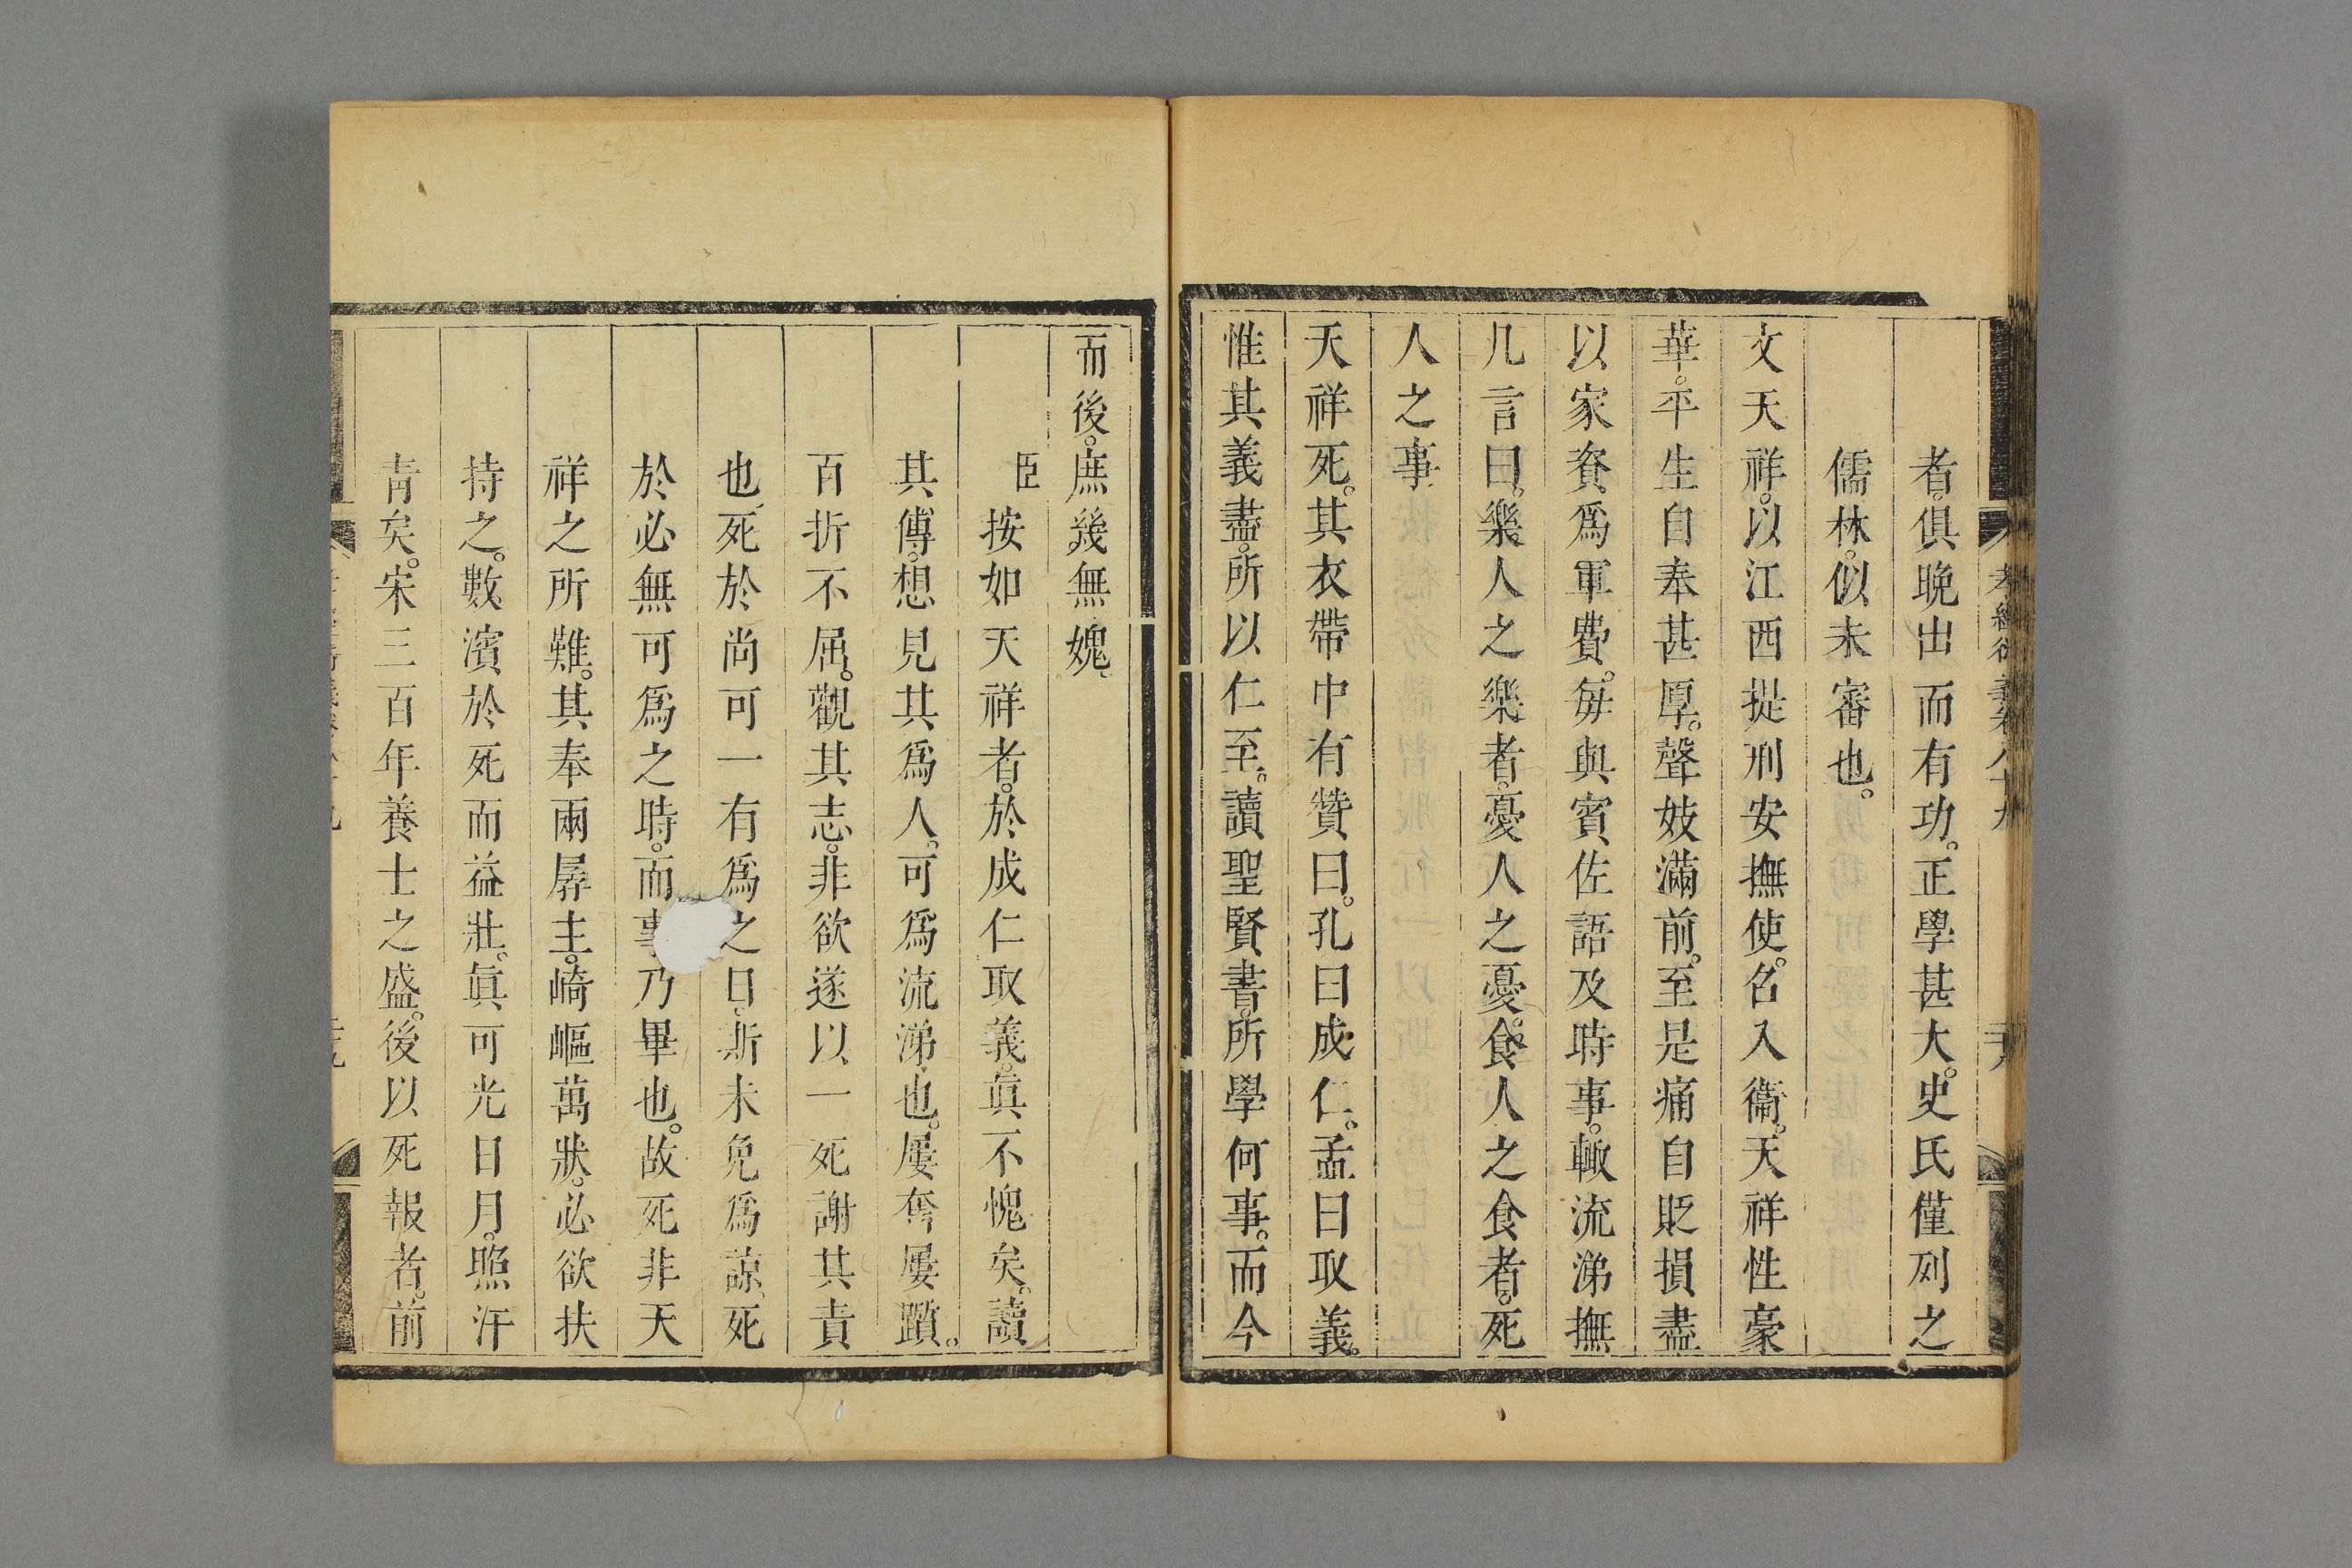 者。俱晚出而有功。正學甚大。史氏僅列之
儒林。似未審也。
文天祥。以江西提刑安撫使。名入衞。天祥性豪
華。平生自奉甚厚。聲妓滿前。至是痛自貶損盡
以家貲爲軍費。每與賓佐語及時事。輙流涕撫
几言曰。樂人之樂者。憂人之憂。食人之食者。死
人之事
天祥死。其衣帶中有贊曰。孔曰成仁。孟曰取義。
惟其義盡。所以仁至。讀聖賢書。所學何事。而今
而後。庶幾無媿
臣按如天祥者。於成仁取義。眞不愧矣。讀
其傳。想見其爲人。可爲流涕也。屢奮屢躓。
百折不屈。觀其志。非欲遂以一死謝其責
也。死於尚可一有爲之日。斯未免爲諒。死
於必無可爲之時。而事乃畢也。故死非天
祥之所難。其奉兩孱主。崎嶇萬狀。必欲扶
持之。數濱於死而益壯。眞可光日月。照汗
靑矣。宋三百年養士之盛。後以死報者。前